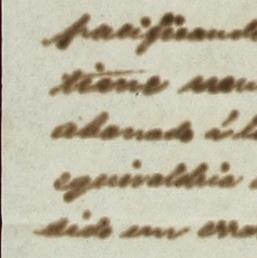 pacificando
tiene
abonado á l
equivaldria
sido un erro